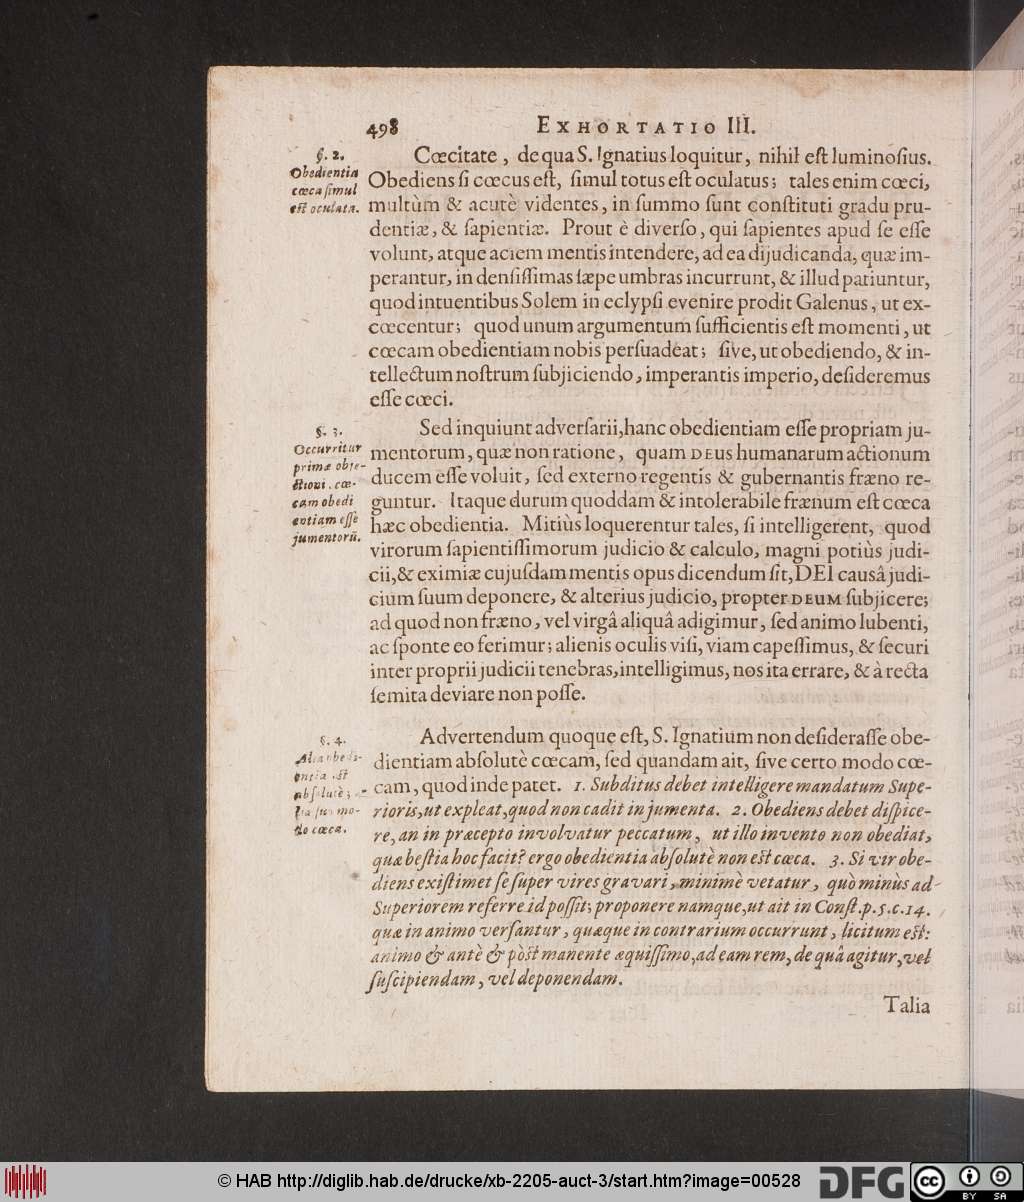 498 EXHORTATIO III.
§. 2.
Obedientia
cœca simul
est oculata.
Cœcitate, de qua S. Ignatius loquitur, nihil est luminosius.
Obediens si cœcus est, simul totus est oculatus; tales enim cœci,
multùm & acutè videntes, in summo sunt constituti gradu pru-
dentiæ, & sapientiæ. Prout è diverso, qui sapientes apud se esse
volunt, atque aciem mentis intendere, ad ea dijudicanda, quæ im-
perantur, in densissimas sæpe umbras incurrunt, & illud patiuntur,
quod intuentibus Solem in eclypsi evenire prodit Galenus, ut ex-
cœcentur; quod unum argumentum sufficientis est momenti, ut
cœcam obedientiam nobis persuadeat; sive, ut obediendo, & in-
tellectum nostrum subjiciendo, imperantis imperio, desideremus
esse cœci.
§. 3.
Occurritur
primæ obje-
ctioni, cœ-
cam obedi
entiam esse
jumentorū.
Sed inquiunt adversarii, hanc obedientiam esse propriam ju-
mentorum, quæ non ratione, quam DEus humanarum actionum
ducem esse voluit, sed externo regentis & gubernantis fræno re-
guntur. Itaque durum quoddam & intolerabile frænum est cœca
hæc obedientia. Mitiùs loquerentur tales, si intelligerent, quod
virorum sapientissimorum judicio & calculo, magni potiùs judi-
cii, & eximiæ cujusdam mentis opus dicendum sit, DEI causâ judi-
cium suum deponere, & alterius judicio, propter DEUM subjicere;
ad quod non fræno, vel virgâ aliquâ adigimur, sed animo lubenti,
ac sponte eo ferimur; alienis oculis visi, viam capessimus, & securi
inter proprii judicii tenebras, intelligimus, nos ita errare, & à recta
semita deviare non posse.
§. 4.
absolutè
mo-
do cœca.
Advertendum quoque est, S. Ignatium non desiderasse obe-
dientiam absolutè cœcam, sed quandam ait, sive certo modo cœ-
cam, quod inde patet. 1. Subditus debet intelligere mandatum Supe-
rioris, ut expleat, quod non cadit in jumenta. 2. Obediens debet dispice-
re, an in præcepto involvatur peccatum, ut illo invento non obediat,
quæ bestia hoc facit? ergo obedientia absolutè non est cæca. 3. Si vir obe-
diens existimet se super vires gravari, minimè vetatur, quò minùs ad
Superiorem referre id possit; proponere namque, ut ait in Const. p. 5. c. 14.
quæ in animo versantur, quæque in contrarium occurrunt, licitum est:
animo & antè & pòst manente æquissimo, ad eam rem, de quâ agitur, vel
suscipiendam, vel deponendam.
Talia
© HAB http://diglib.hab.de/drucke/xb-2205-auct-3/start.htm?image=00528
DFG
cc BY SA